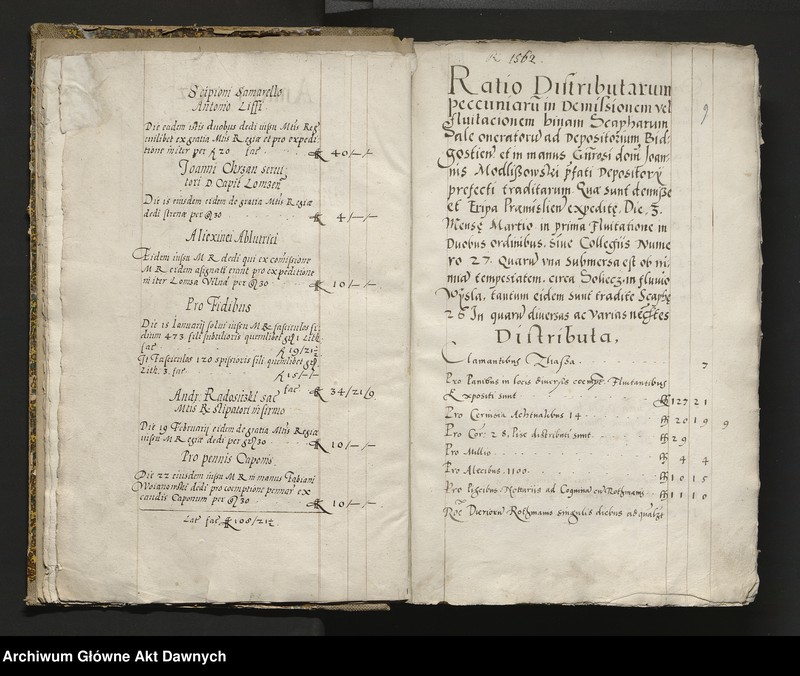 Scipioni Samarello
Antonio Liffi
Die eadem istis duobus dedi iussu Mtis Reg
cuilibet ex gratia Mtis Regiæ et pro expedi
tione in iter per fl 20 fac fl 40/-/-
Joanni Chrzan servi
tori D Capit Lomzen
Die 15 eiusdem eidem de gratia Mtis Regiæ
dedi strenæ per 30 fl 4/-/-
Aliexinei Ablutrici
Eidem iussu M R dedi qui ex comissione
M R eidem assignati erant pro expeditione
in iter Lomza Vilna per 30 fl 10/-/-
Pro Fidibus
Die 15 Januarij solvi iussu M R fasciculos fi
dium 473 fili subtilioris quemlibet 1 Lith
fac fl 19/21½
It Fasciculos 120 spissioris fili quemlibet
Lith. 3. fac fl 15/-/-
fac fl 34/21/9
Andr. Radositzki sac
Mtis R Stipatori infirmo
Die 19 Februarij eidem de gratia Mtis Regiæ
iussu M R egiæ dedi per 30 fl 10/-/-
Pro pennis Caponis
Die 22 eiusdem iussu M R in manus Fabiani
Woianowski dedi pro coemptione pennar ex
caudis Caponum per 30 fl 10/-/-
Lat fac fl 108/21½
1562
9
Ratio Distributarum
peccuniarū in Demissionem vel
fluitacionem binam Scapharum
Sale oneratorū ad Depositorium Bid-
gostien et in manus Gnrosi dom Joan-
nis Modliszowski pfati Depositorÿ
prefecti traditarum. Quæ sunt demissæ
et Eripa Præmislien expeditę. Die. 3.
Mense Martio in prima Fluitatione in
Duobus ordinibus. Sive Collegiis Nume
ro 27. Quarū vna Submersa est ob ni-
mia tempestatem. circa Soliecz. in fluvio
Wÿsla. tantum eidem sunt traditę Scaphę
26 In quarū diversas ac varias nectes
Distributa,
Clamantibus 7
Pro Panibus in locis diversis coempt. Fluitantibus
Expositi sunt fl 127 21
Pro Cervisia Achtualibus 14 fl 20 19 9
Pro Cor: 28. Pise distributi sunt fl 29
Pro Millio fl 4 4
Pro Alecibus. 1100 fl 10 15
Pro Piscibus Nottariis ad Coquinā cū Rothmans fl 11 10
Roē Dierorū Rothmanis singulis diebus ad qualz
Archiwum Główne Akt Dawnych